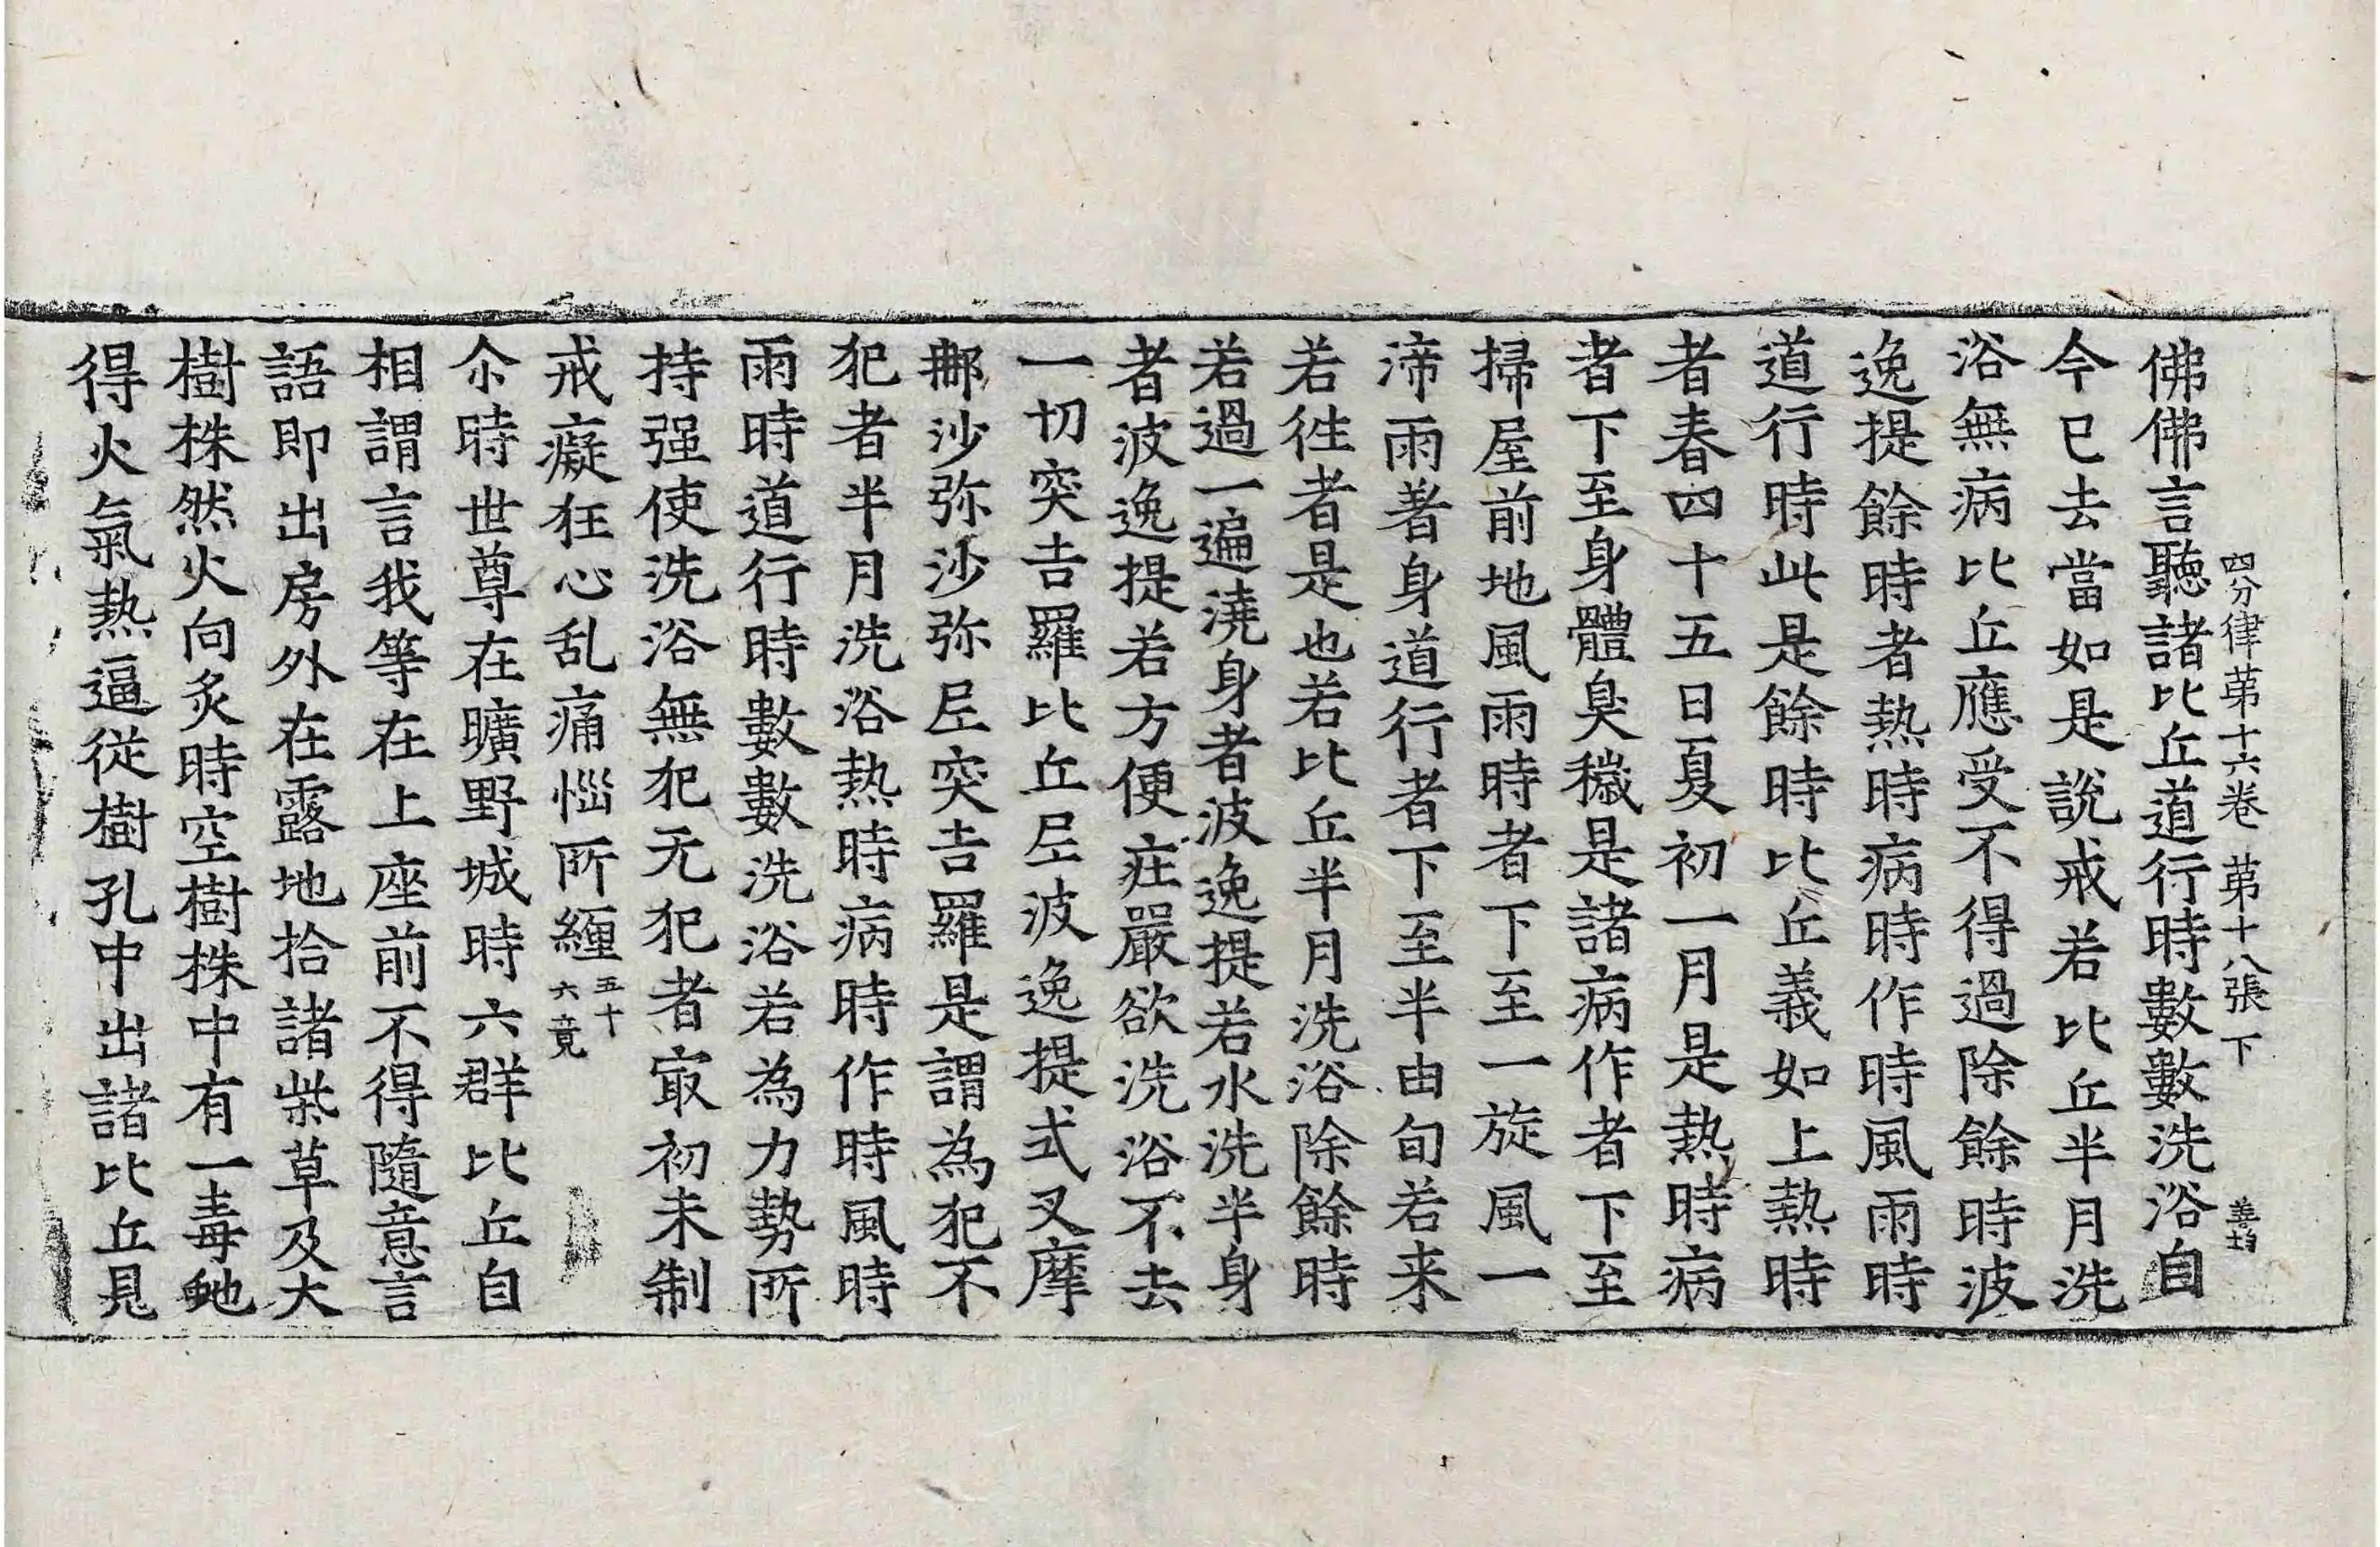 四分律苐十六卷 苐十八張 下
佛佛言聽諸比丘道行時數數洗浴自
今已去當如是說戒若比丘半月洗
浴無病比丘應受不得過除餘時波
逸提餘時者熱時病時作時風雨時
道行時此是餘時比丘義如上熱時
者春四十五日夏初一月是熱時病
者下至身體臭穢是諸病作者下至
掃屋前地風雨時者下至一旋風一
渧雨著身道行者下至半由旬若来
若往者是也若比丘半月洗浴除餘時
若過一遍澆身者波逸提若水洗半身
者波逸提若方便庄嚴欲洗浴不去
一切突吉羅比丘尼波逸提式叉摩
那沙弥沙弥尼突吉羅是謂為犯不
犯者半月洗浴熱時病時作時風時
雨時道行時數數洗浴若為力勢所
持强使洗浴無犯无犯者㝡初未制
戒癡狂心乱痛惱所纏五十六竟
尒時世尊在曠野城時六群比丘自
相謂言我等在上座前不得隨意言
語即出房外在露地拾諸柴草及大
樹株然火向炙時空樹株中有一毒虵
得火氣熱逼從樹孔中出諸比丘見